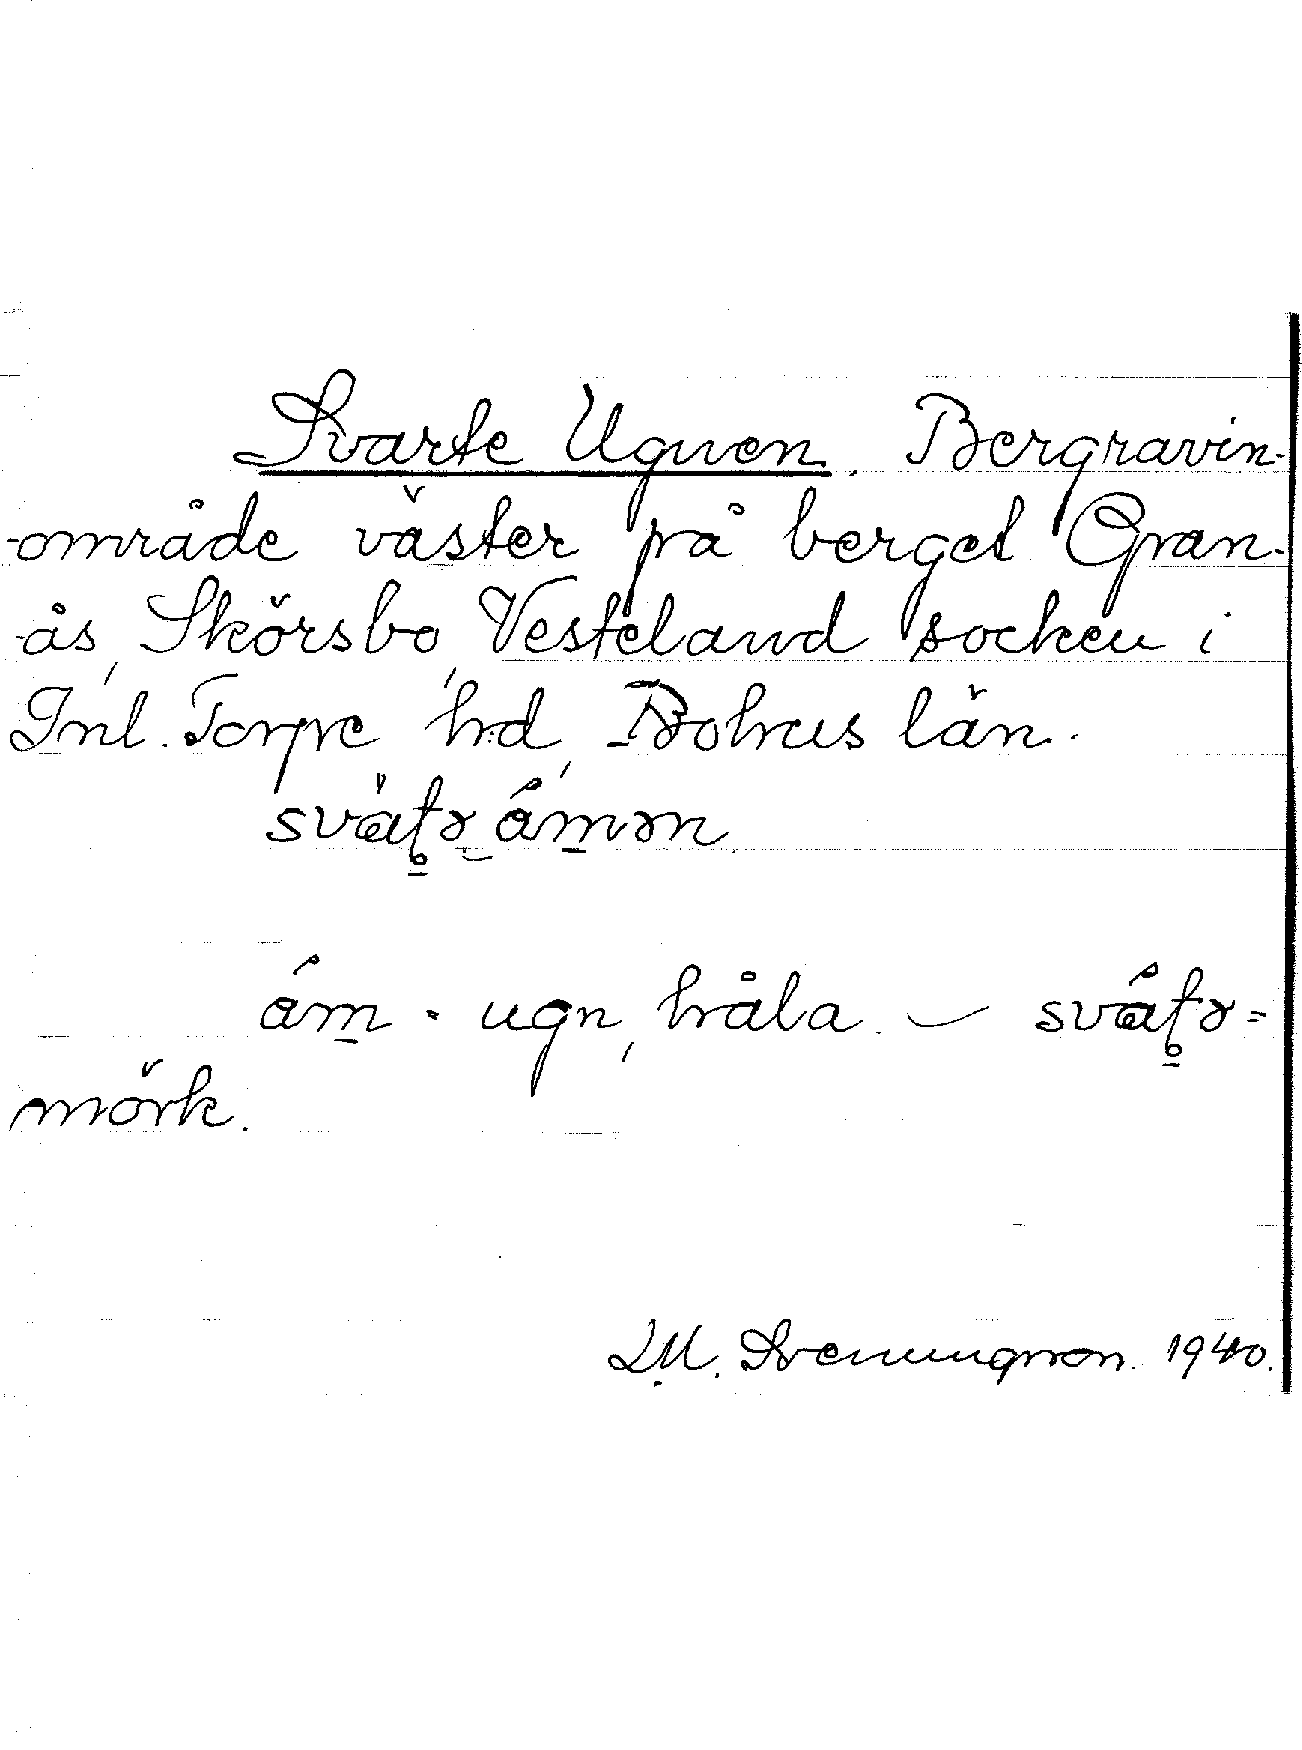 Svarte Ugnen. Bergravin-
-område väster på berget Gran-
-ås, Skörsbo, Vesteland socken i
Inl. Torpe hd, Bohus län.
ám - ugn, håla. –
mörk.
M. Svenungson. 1940.